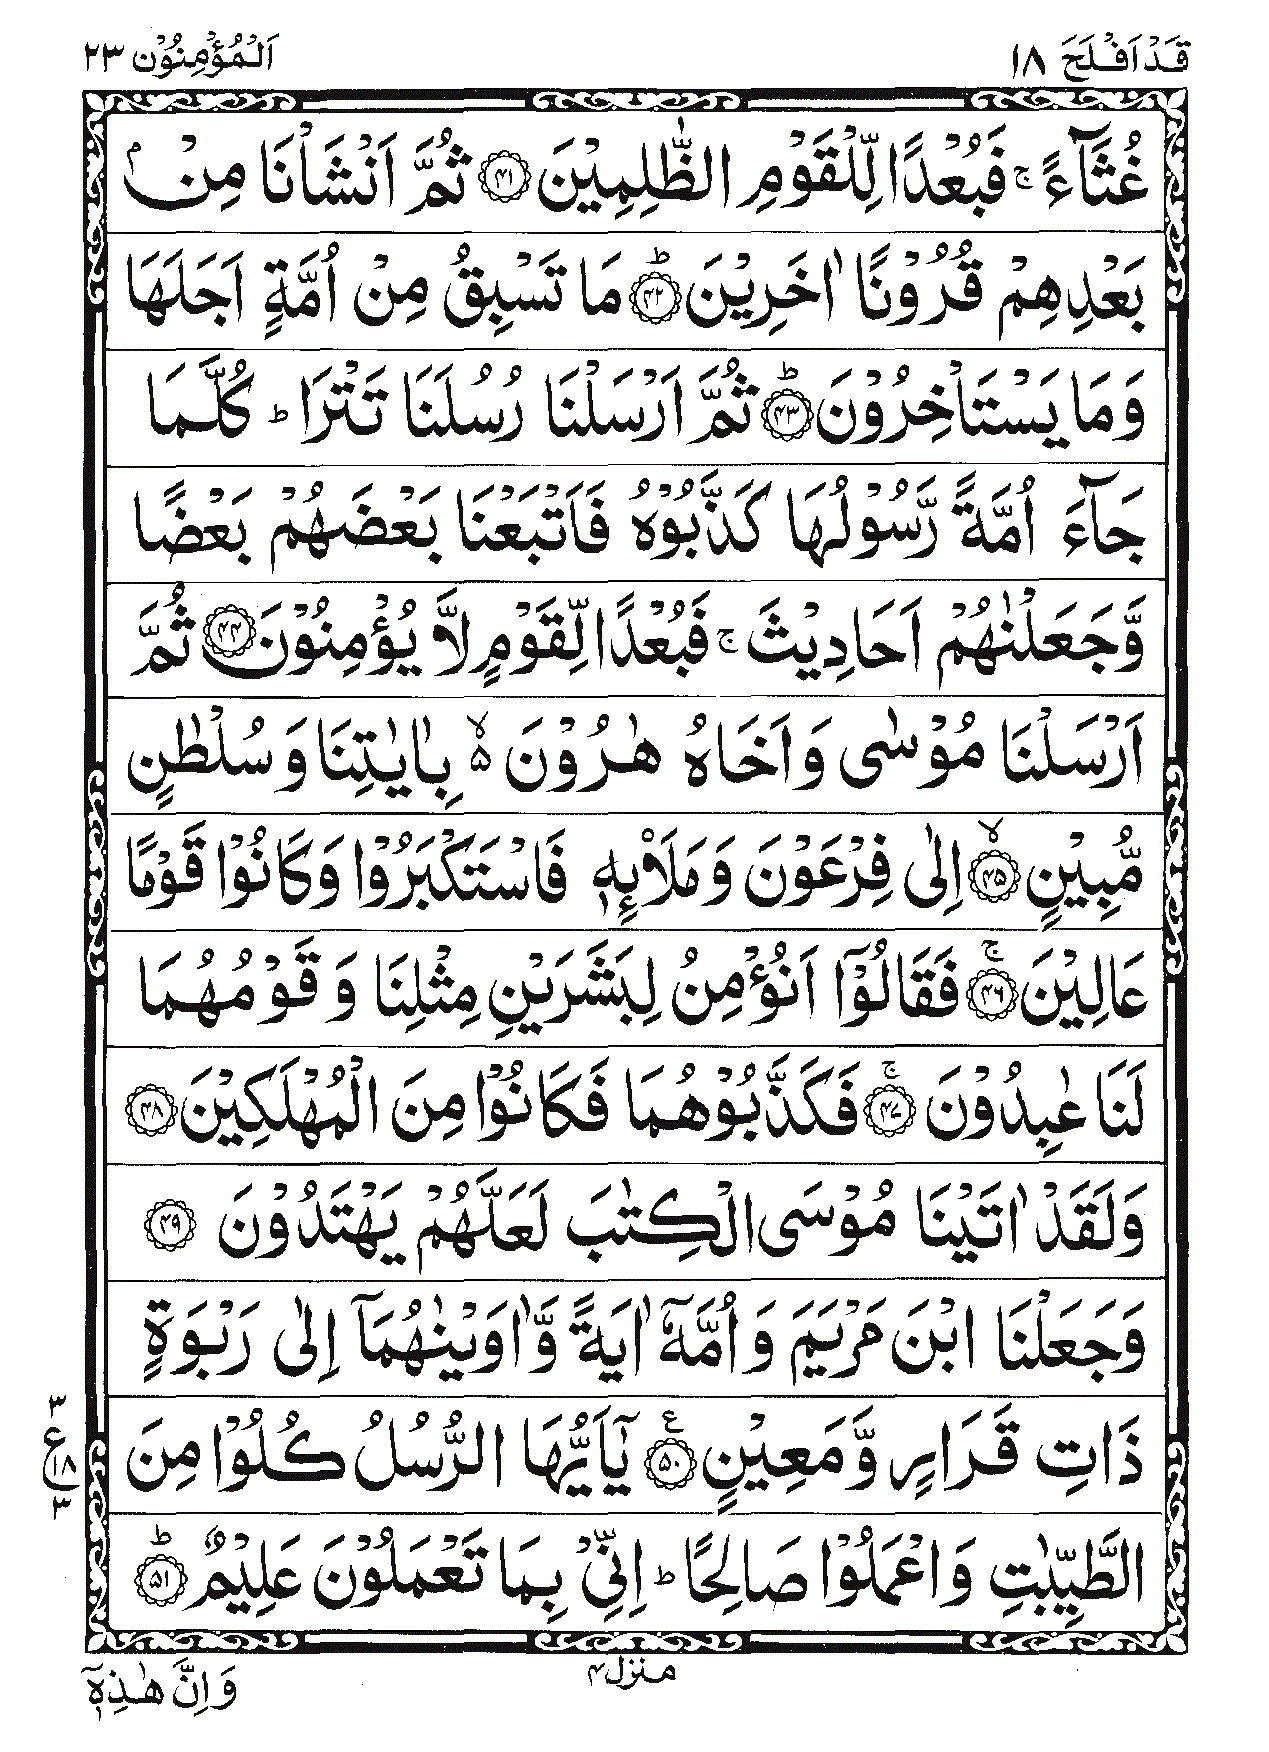 قَدْ اَفْلَحَ ۱۸
اَلْمُؤْمِنُوْن ۲۳
غُثَآءً ۚ فَبُعْدًا لِّلْقَوْمِ الظّٰلِمِيْنَ ۝۴۱ ثُمَّ اَنْشَاْنَا مِنْۢ
بَعْدِهِمْ قُرُوْنًا اٰخَرِيْنَ ؕ۝۴۲ مَا تَسْبِقُ مِنْ اُمَّةٍ اَجَلَهَا
وَمَا يَسْتَاْخِرُوْنَ ؕ۝۴۳ ثُمَّ اَرْسَلْنَا رُسُلَنَا تَتْرَا ؕ كُلَّمَا
جَآءَ اُمَّةً رَّسُوْلُهَا كَذَّبُوْهُ فَاَتْبَعْنَا بَعْضَهُمْ بَعْضًا
وَّجَعَلْنٰهُمْ اَحَادِيْثَ ۚ فَبُعْدًا لِّقَوْمٍ لَّا يُؤْمِنُوْنَ ۝۴۴ ثُمَّ
اَرْسَلْنَا مُوْسٰى وَاَخَاهُ هٰرُوْنَ ۙ۵ بِاٰيٰتِنَا وَسُلْطٰنٍ
مُّبِيْنٍ ۙ۝۴۵ اِلٰى فِرْعَوْنَ وَمَلَا۟ئِهٖ فَاسْتَكْبَرُوْا وَكَانُوْا قَوْمًا
عَالِيْنَ ۚ۝۴۶ فَقَالُوْۤا اَنُؤْمِنُ لِبَشَرَيْنِ مِثْلِنَا وَقَوْمُهُمَا
لَنَا عٰبِدُوْنَ ۚ۝۴۷ فَكَذَّبُوْهُمَا فَكَانُوْا مِنَ الْمُهْلَكِيْنَ ۝۴۸
وَلَقَدْ اٰتَيْنَا مُوْسَى الْكِتٰبَ لَعَلَّهُمْ يَهْتَدُوْنَ ۝۴۹
وَجَعَلْنَا ابْنَ مَرْيَمَ وَاُمَّهٗۤ اٰيَةً وَّاٰوَيْنٰهُمَاۤ اِلٰى رَبْوَةٍ
ذَاتِ قَرَارٍ وَّمَعِيْنٍ ع۝۵۰ يٰۤاَيُّهَا الرُّسُلُ كُلُوْا مِنَ
۳ ع ۱۸ ۳
الطَّيِّبٰتِ وَاعْمَلُوْا صَالِحًا ؕ اِنِّيْ بِمَا تَعْمَلُوْنَ عَلِيْمٌ ؕ۝۵۱
منزل ۴
وَاِنَّ هٰذِهٖۤ